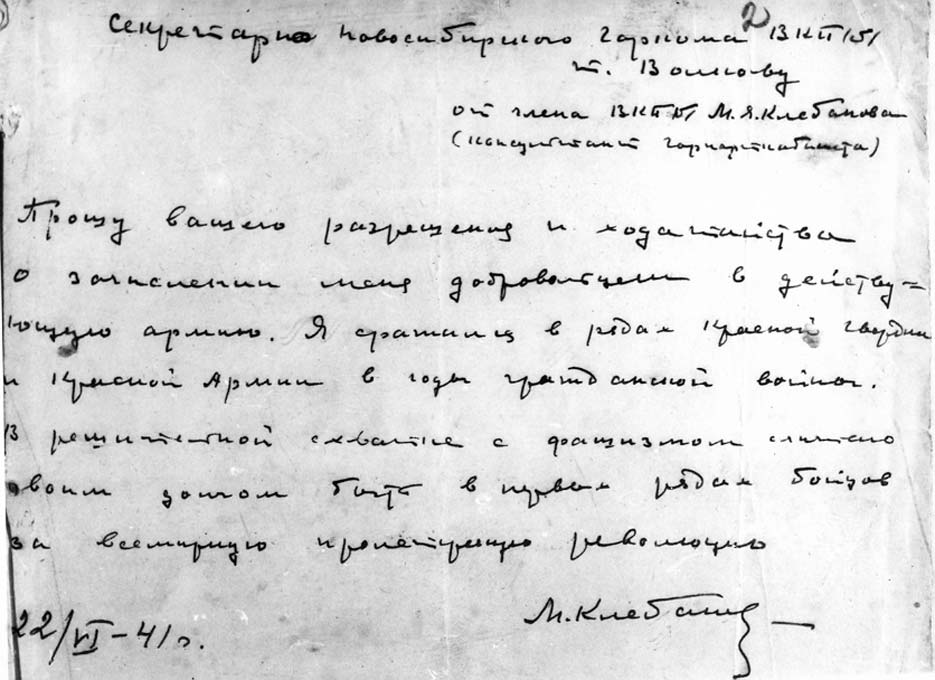 2
Секретарю Новосибирского Горкома ВКП/б/
т. Волкову
от члена ВКП/б/ М.Я.Клебанова
(консультант горпарткабинета)
Прошу вашего разрешения и ходатайства
о зачислении меня добровольцем в действу=
ющую армию. Я сражался в рядах Красной гвардии
и Красной Армии в годы гражданской войны.
В решительной схватке с фашизмом считаю
своим долгом быть в первых рядах бойцов
за всемирную пролетарскую революцию
М.Клебанов
22/VI-41г.